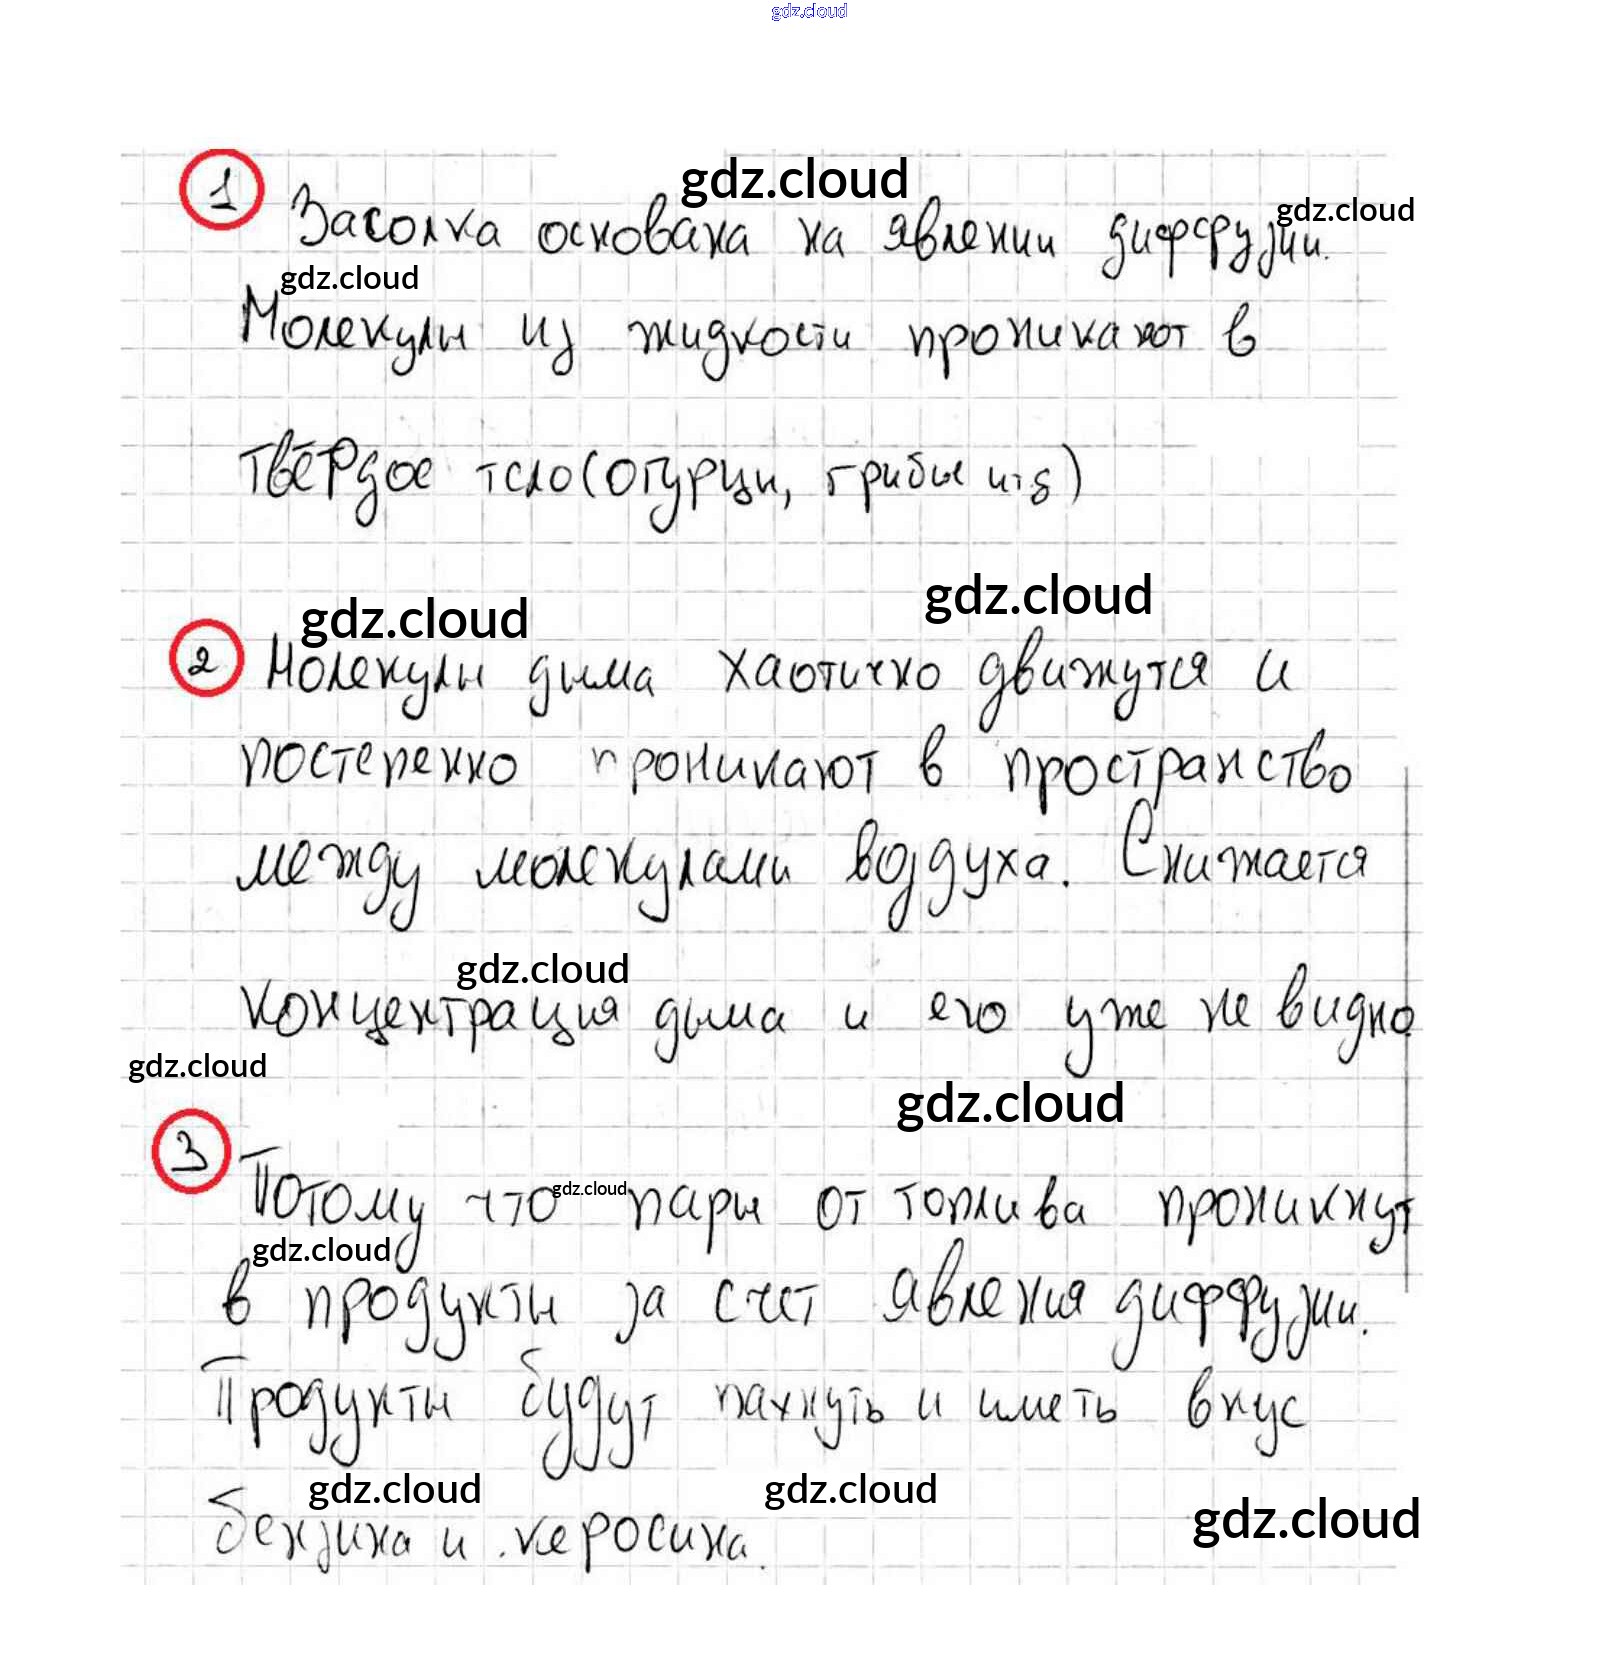 gdz.cloud
gdz.cloud
1 Засолка основана на явлении диффузии.
gdz.cloud
gdz.cloud
Молекулы из жидкости проникают в
твёрдое тело (огурцы, грибы и
gdz.cloud
gdz.cloud
2 Молекулы дыма хаотично движутся и
постепенно проникают в пространство
между молекулами воздуха. Снижается
gdz.cloud
концентрация дыма и его уже не видно
gdz.cloud
gdz.cloud
3 Потому что пары от топлива проникнут
gdz.cloud
gdz.cloud
в продукты за счет явления диффузии.
Продукты будут пахнуть и иметь вкус
gdz.cloud
gdz.cloud
gdz.cloud
бензина и керосина.